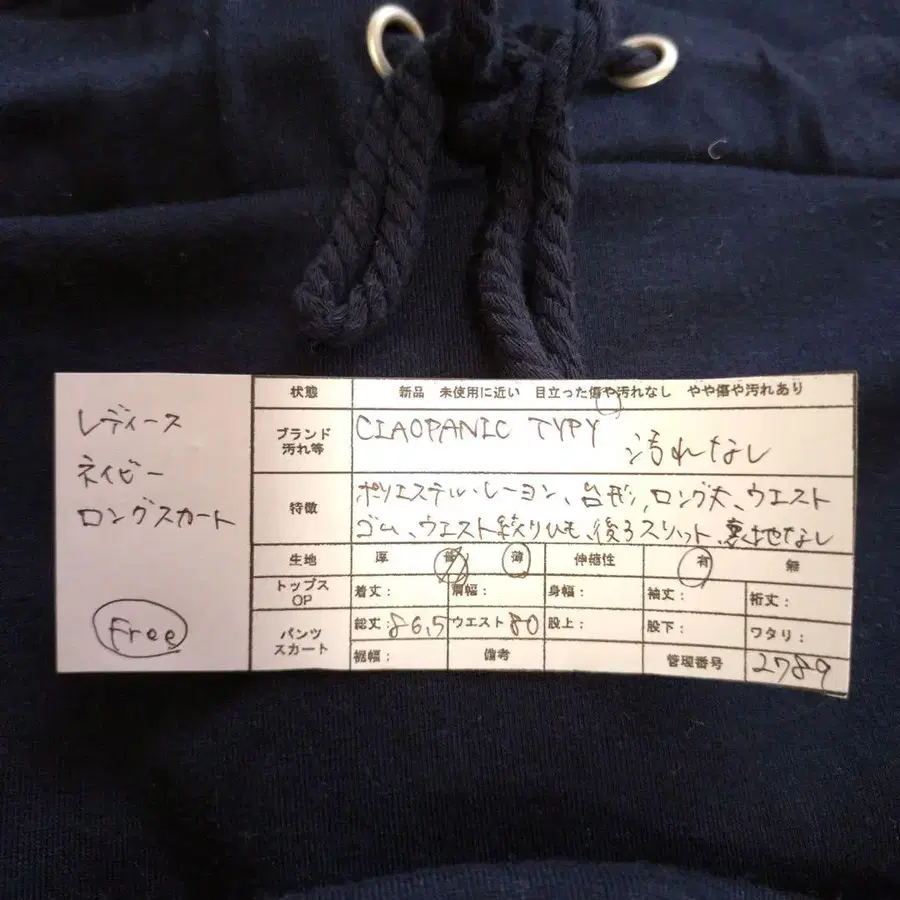 レディース
ネイビー
ロングスカート
Free
状態 新品 未使用に近い 目立った傷や汚れなし やや傷や汚れあり
ブランド 汚れ等 CIAOPANIC TYPY 汚れなし
特徴 ポリエステル・レーヨン、台形、ロング丈、ウエスト
ゴム、ウエスト絞りひも、後ろスリット、裏地なし
生地 厚 普 薄 伸縮性 有 無
トップス OP 着丈: 肩幅: 身幅: 袖丈: 裄丈:
パンツ スカート 総丈:86.5 ウエスト80 股上: 股下: ワタリ:
裾幅: 備考 管理番号 2789